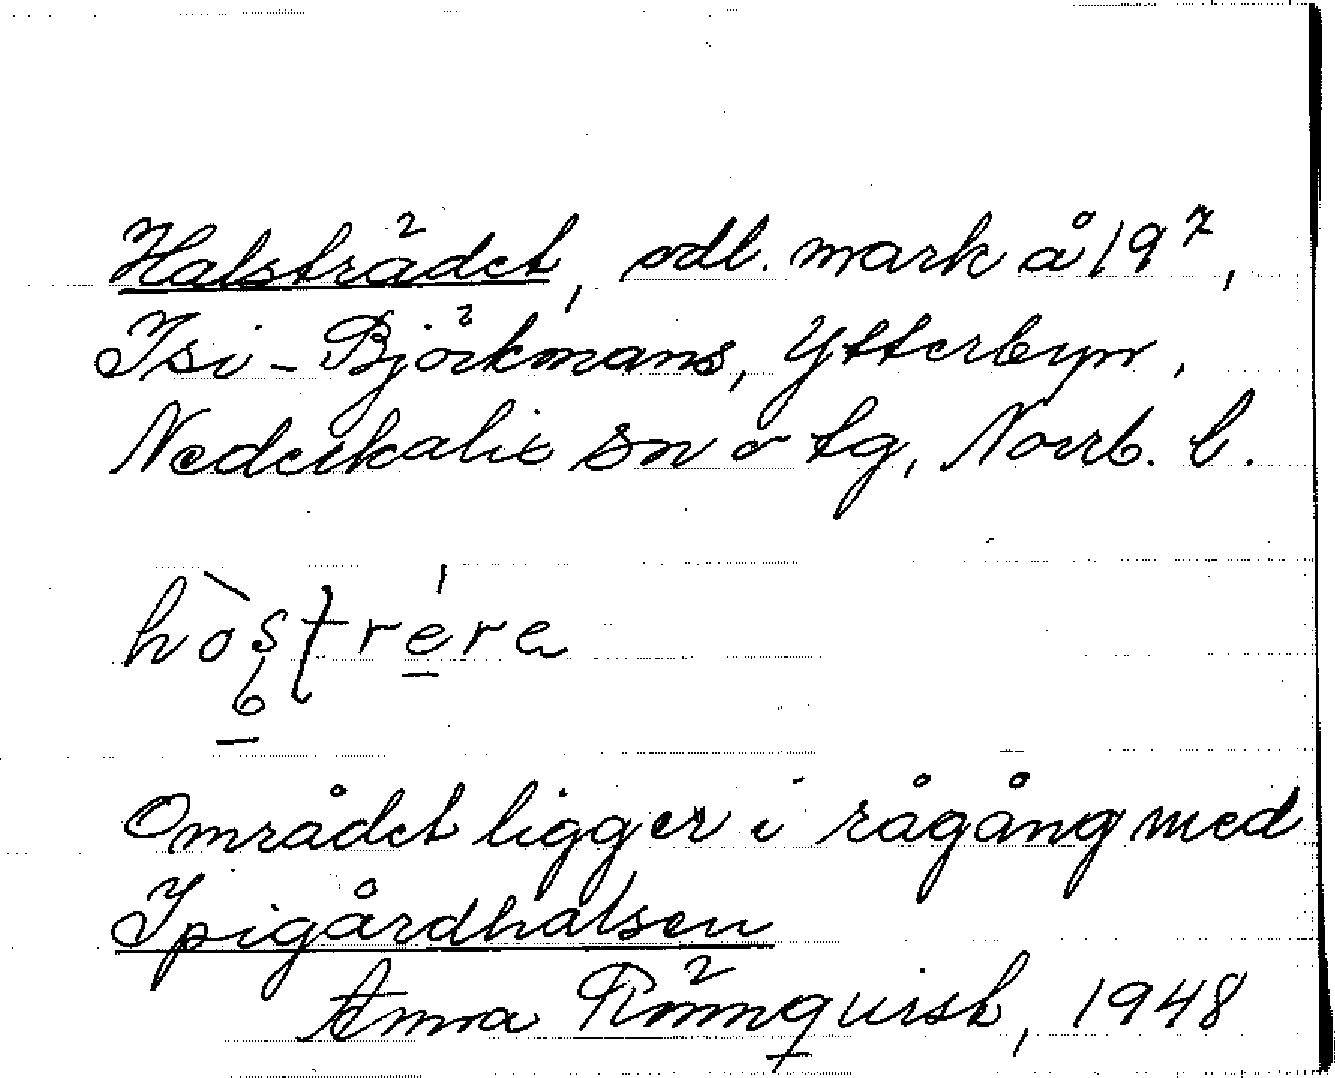 Halsträdet, odl. mark å 19⁷,
Isi-Björkmans, Ytterbyn,
Nederkalix sn o tg, Norrb. l.
Området ligger i rågång med
Ipigårdhalsen
Anna Rönnquist, 1948